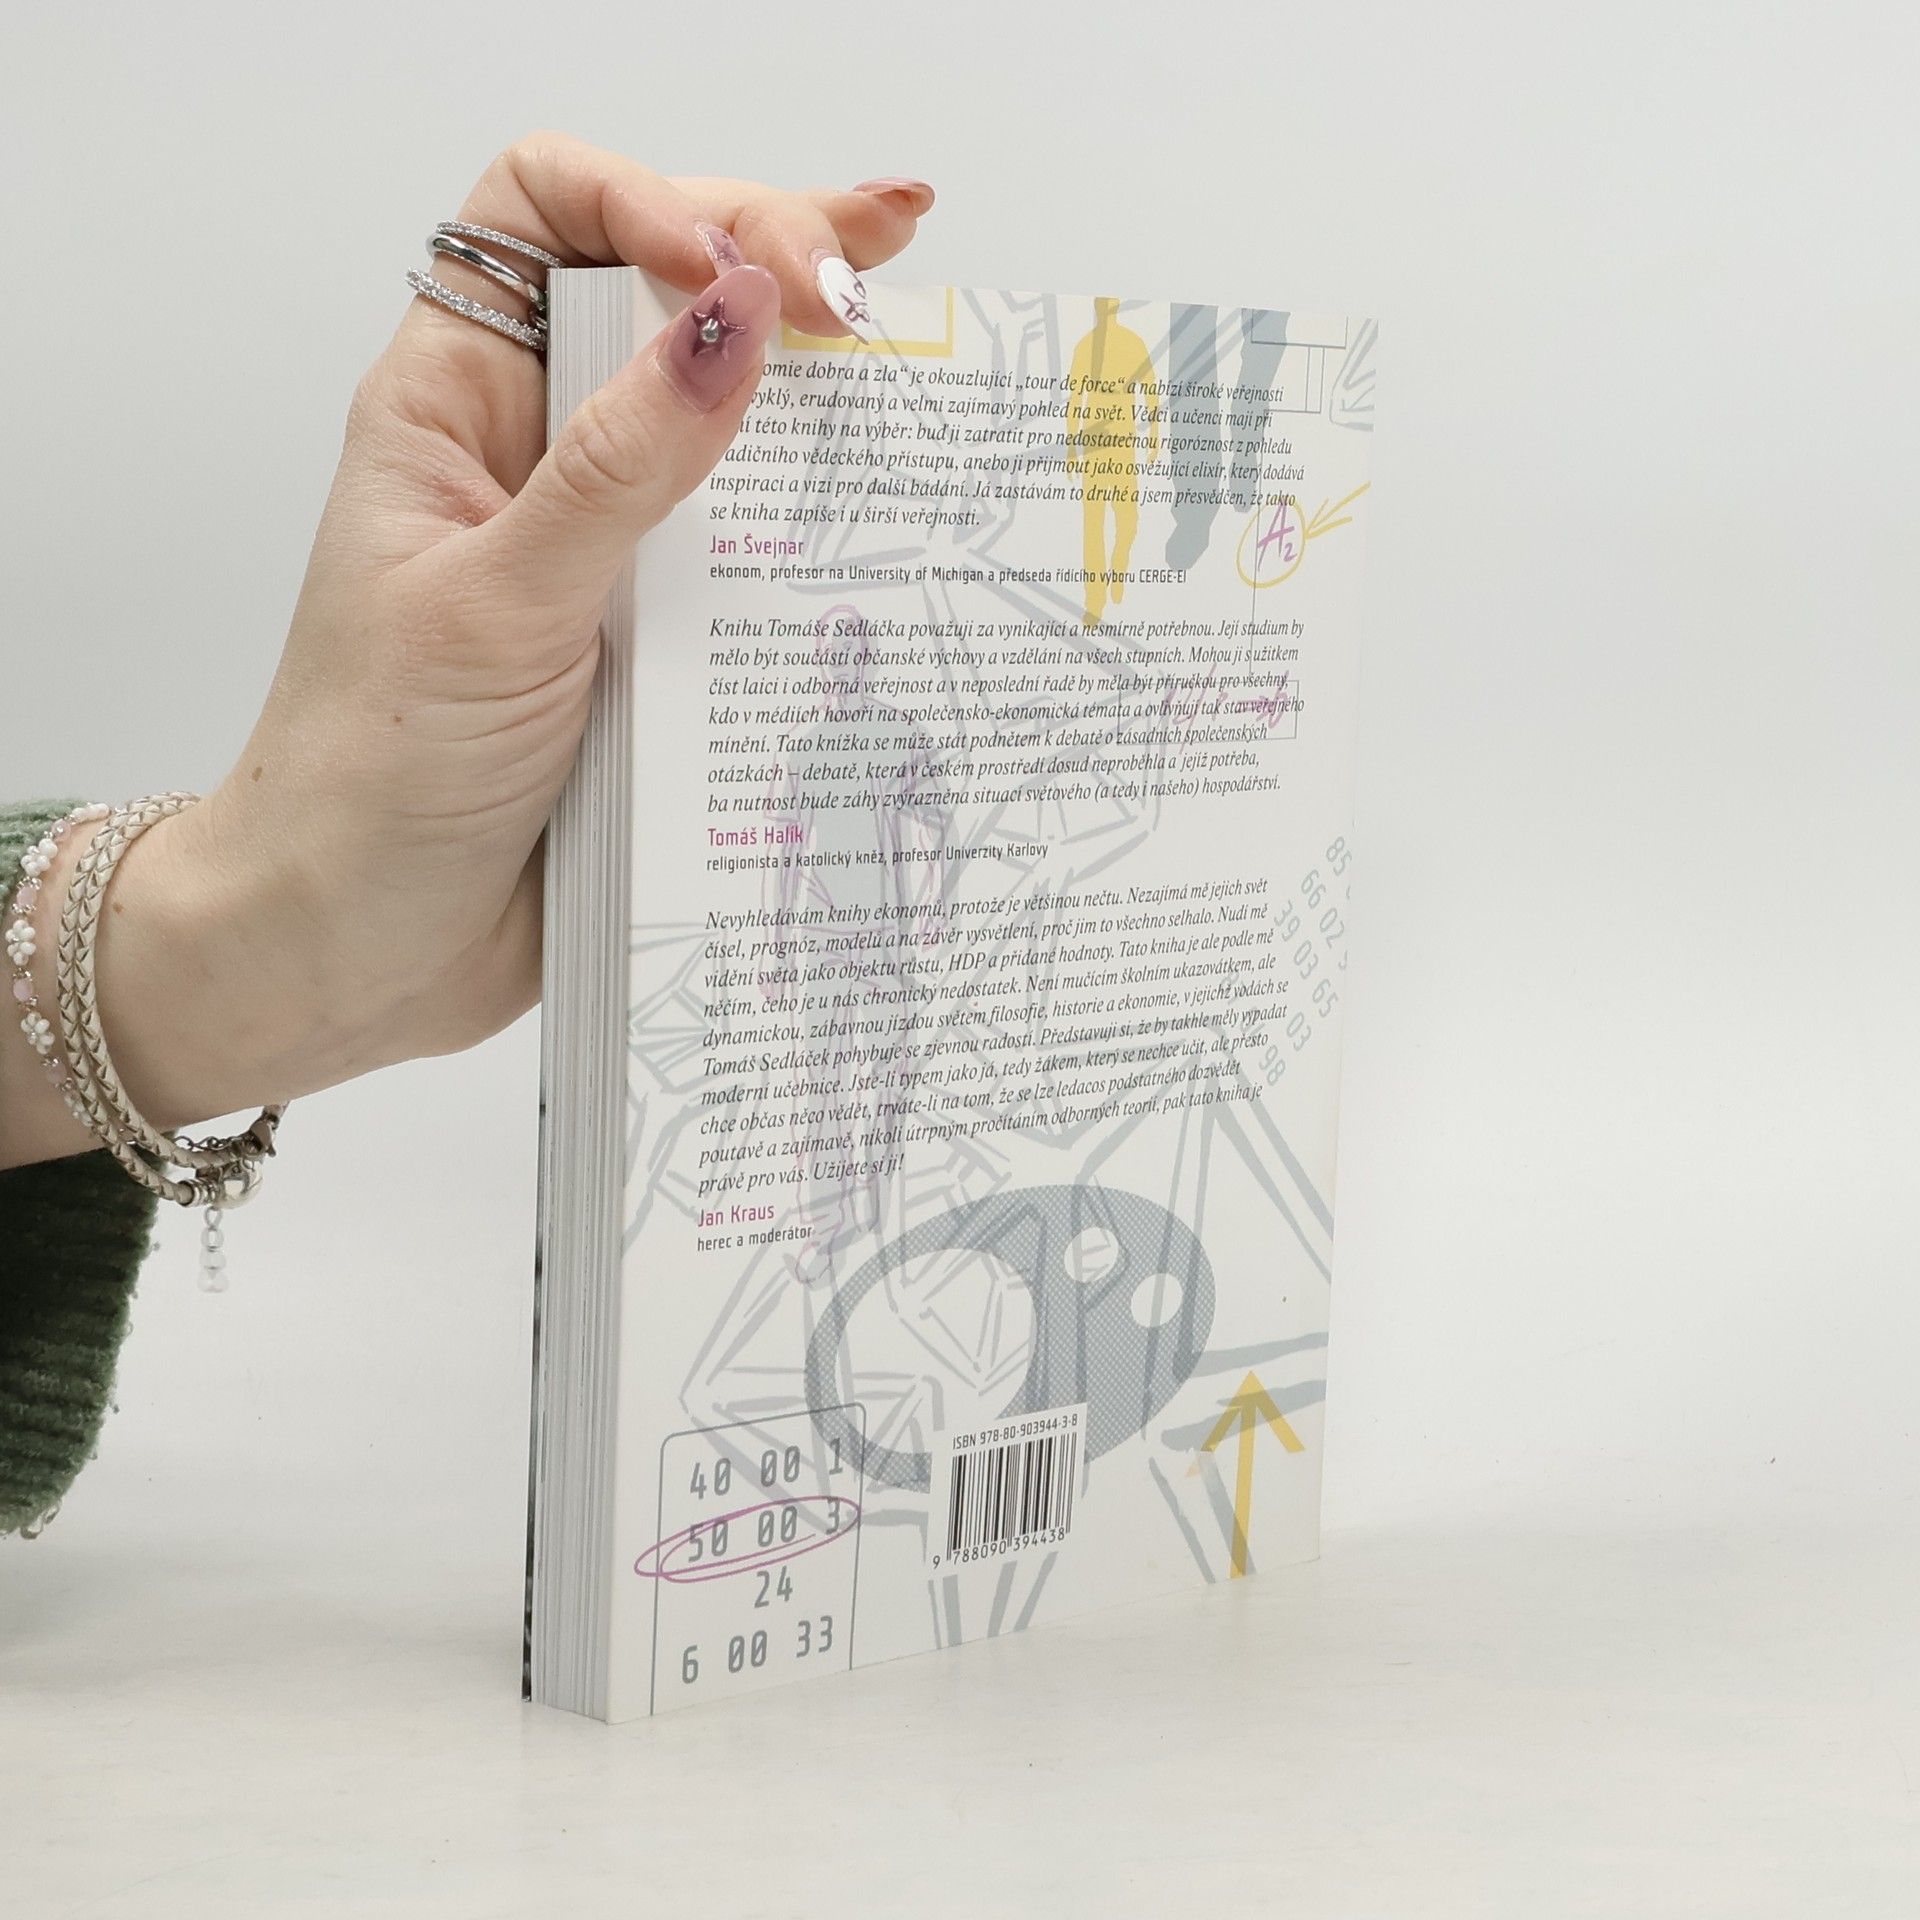 omie dobra a zla“ je okouzlující „tour de force“ a nabízí široké veřejnosti
vyklý, erudovaný a velmi zajímavý pohled na svět. Vědci a učenci mají při
ní této knihy na výběr: buď ji zatratit pro nedostatečnou rigoróznost z pohledu
adičního vědeckého přístupu, anebo ji přijmout jako osvěžující elixír, který dodává
inspiraci a vizi pro další bádání. Já zastávám to druhé a jsem přesvědčen, že takto
se kniha zapíše i u širší veřejnosti.
Jan Švejnar
ekonom, profesor na University of Michigan a předseda řídicího výboru CERGE-EI
A2
Knihu Tomáše Sedláčka považuji za vynikající a nesmírně potřebnou. Její studium by
mělo být součástí občanské výchovy a vzdělání na všech stupních. Mohou ji s užitkem
číst laici i odborná veřejnost a v neposlední řadě by měla být příručkou pro všechny,
kdo v médiích hovoří na společensko-ekonomická témata a ovlivňují tak stav veřejného
mínění. Tato knížka se může stát podnětem k debatě o zásadních společenských
otázkách – debatě, která v českém prostředí dosud neproběhla a jejíž potřeba,
ba nutnost bude záhy zvýrazněna situací světového (a tedy i našeho) hospodářství.
Tomáš Halík
religionista a katolický kněz, profesor Univerzity Karlovy
Nevyhledávám knihy ekonomů, protože je většinou nečtu. Nezajímá mě jejich svět
čísel, prognóz, modelů a na závěr vysvětlení, proč jim to všechno selhalo. Nudí mě
vidění světa jako objektu růstu, HDP a přidané hodnoty. Tato kniha je ale podle mě
něčím, čeho je u nás chronický nedostatek. Není mučícím školním ukazovátkem, ale
dynamickou, zábavnou jízdou světem filosofie, historie a ekonomie, v jejichž vodách se
Tomáš Sedláček pohybuje se zjevnou radostí. Představuji si, že by takhle měly vypadat
moderní učebnice. Jste-li typem jako já, tedy žákem, který se nechce učit, ale přesto
chce občas něco vědět, trváte-li na tom, že se lze ledacos podstatného dozvědět
poutavě a zajímavě, nikoli útrpným pročítáním odborných teorií, pak tato kniha je
právě pro vás. Užijete si ji!
Jan Kraus
herec a moderátor
85
66 02
39 03 65
03
98
ISBN 978-80-903944-3-8
9 788090 394438
40 00 1
50 00 3
24
6 00 33